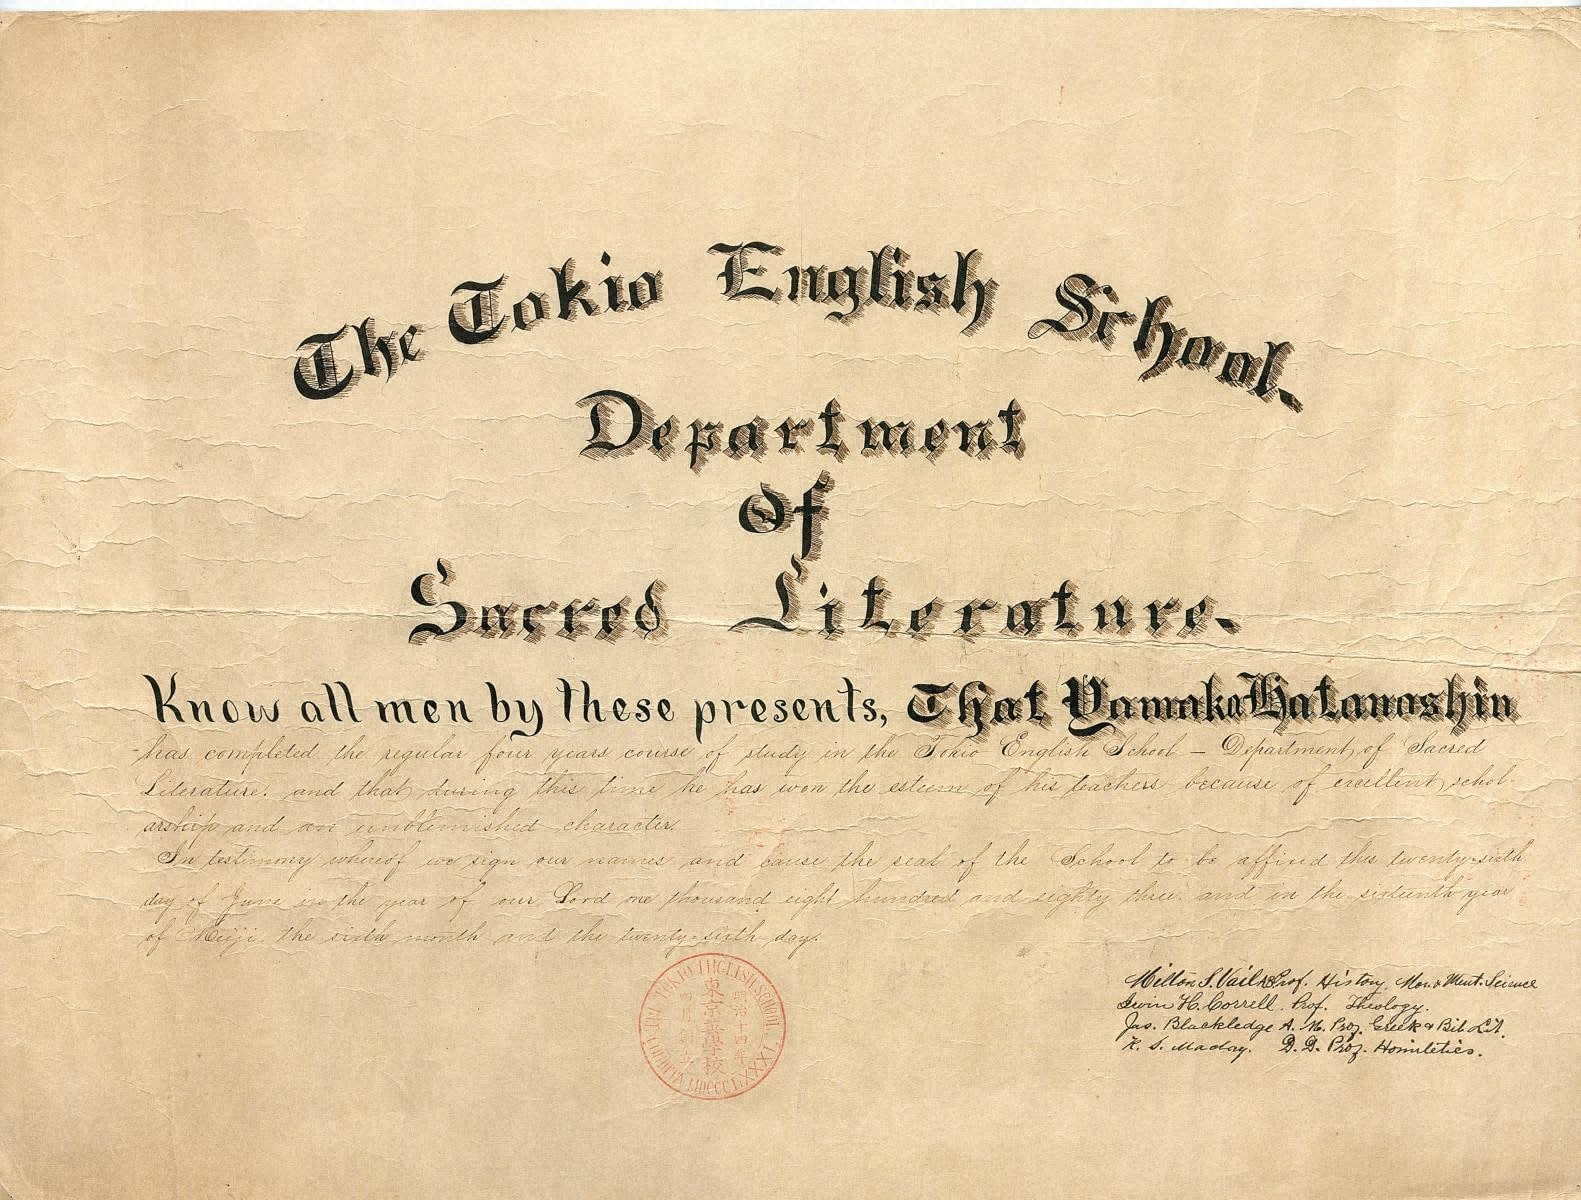 The Tokio English School.
Department
Of
Sacred Literature.
Know all men by these presents, That Yamaka Hatanoshin
has completed the regular four years course of study in the Tokio English School – Department of Sacred
Literature. and that during this time he has won the esteem of his teachers because of excellent schol-
arship and an unblemished character.
In testimony whereof we sign our names and cause the seal of the School to be affixed this twenty-sixth
day of June in the year of our Lord one thousand eight hundred and eighty three. and in the sixteenth year
of Meiji, the sixth month and the twenty-sixth day.
Milton S. Vail Prof. History, Mor. & Ment. Science
Irwin H. Correll. Prof. Theology.
Jas. Blackledge A. M. Prof. Greek & Bib. Lit.
R. S. Maclay. D. D. Prof. Homiletics.
THE TOKIO ENGLISH SCHOOL. FOUNDED MDCCCLXXXI.
東京英學校
明治十四年